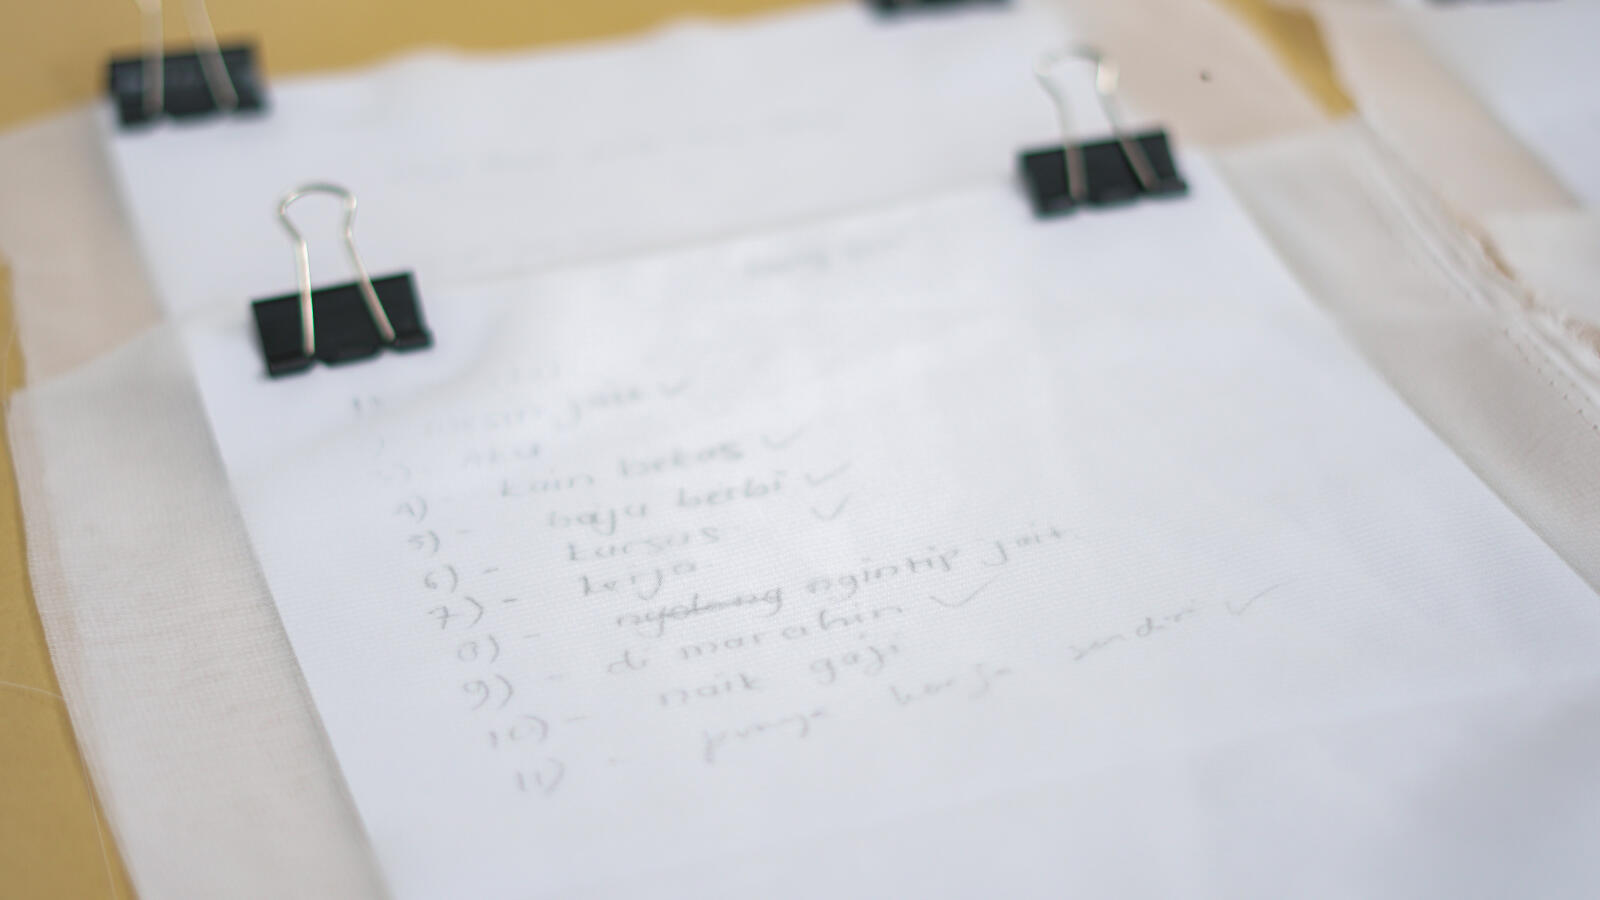 1)
mesin jait ✓
3) - AKU
4) - kain bekas ✓
5) - baju berbi ✓
6) - kursus ✓
7) - kerja
8) - nyolong ngintip jait
9) - di marahin ✓
10) - naik gaji
11) - punya kerja sendiri ✓